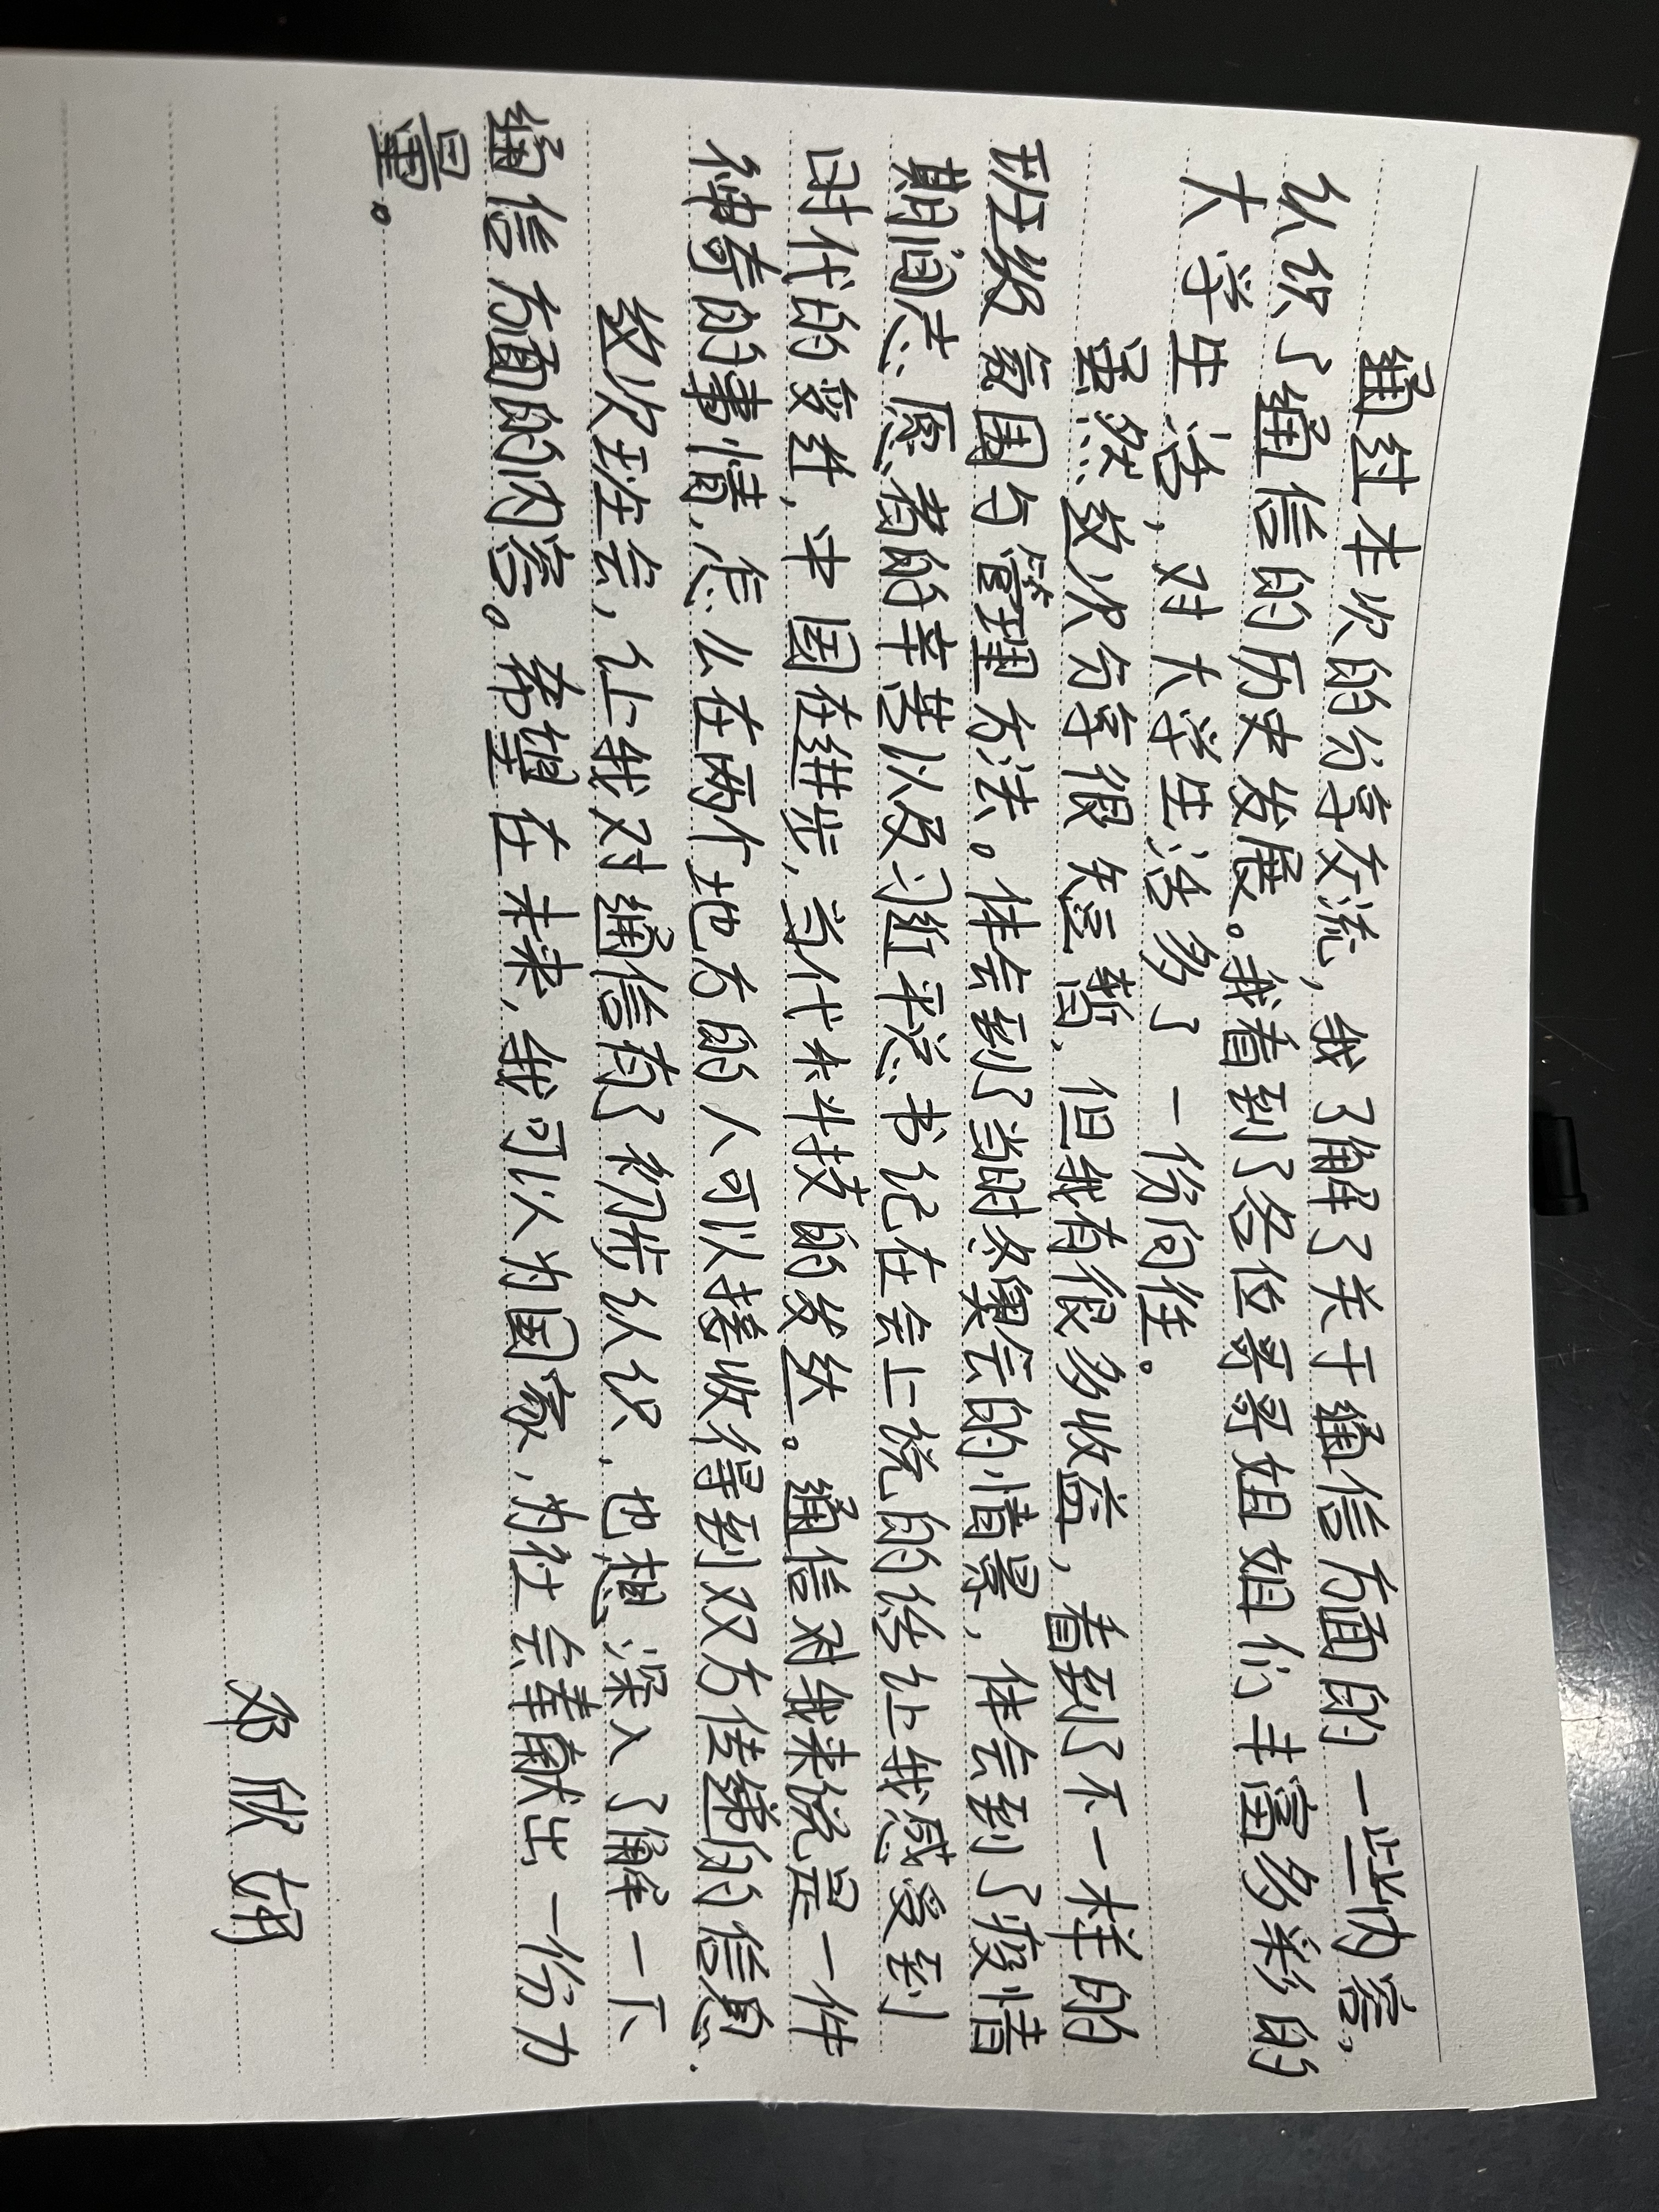 通过本次的分享交流，我了解了关于通信方面的一些内容，
认识了通信的历史发展。我看到了各位哥哥姐姐们丰富多彩的
大学生活，对大学生活多了一份向往。
虽然这次分享很短暂，但我有很多收益，看到了不一样的
班级氛围与管理方法。体会到了当时冬奥会的情景，体会到了疫情
期间志愿者的辛苦以及习近平总书记在会上说的话让我感受到
时代的变迁，中国在进步，当代科技的发达。通信对我来说是一件
神奇的事情，怎么在两个地方的人可以接收得到双方传递的信息.
这次班会，让我对通信有了初步认识，也想深入了解一下
通信方面的内容。希望在未来，我可以为国家，为社会奉献出一份力
量。
邓欣娟